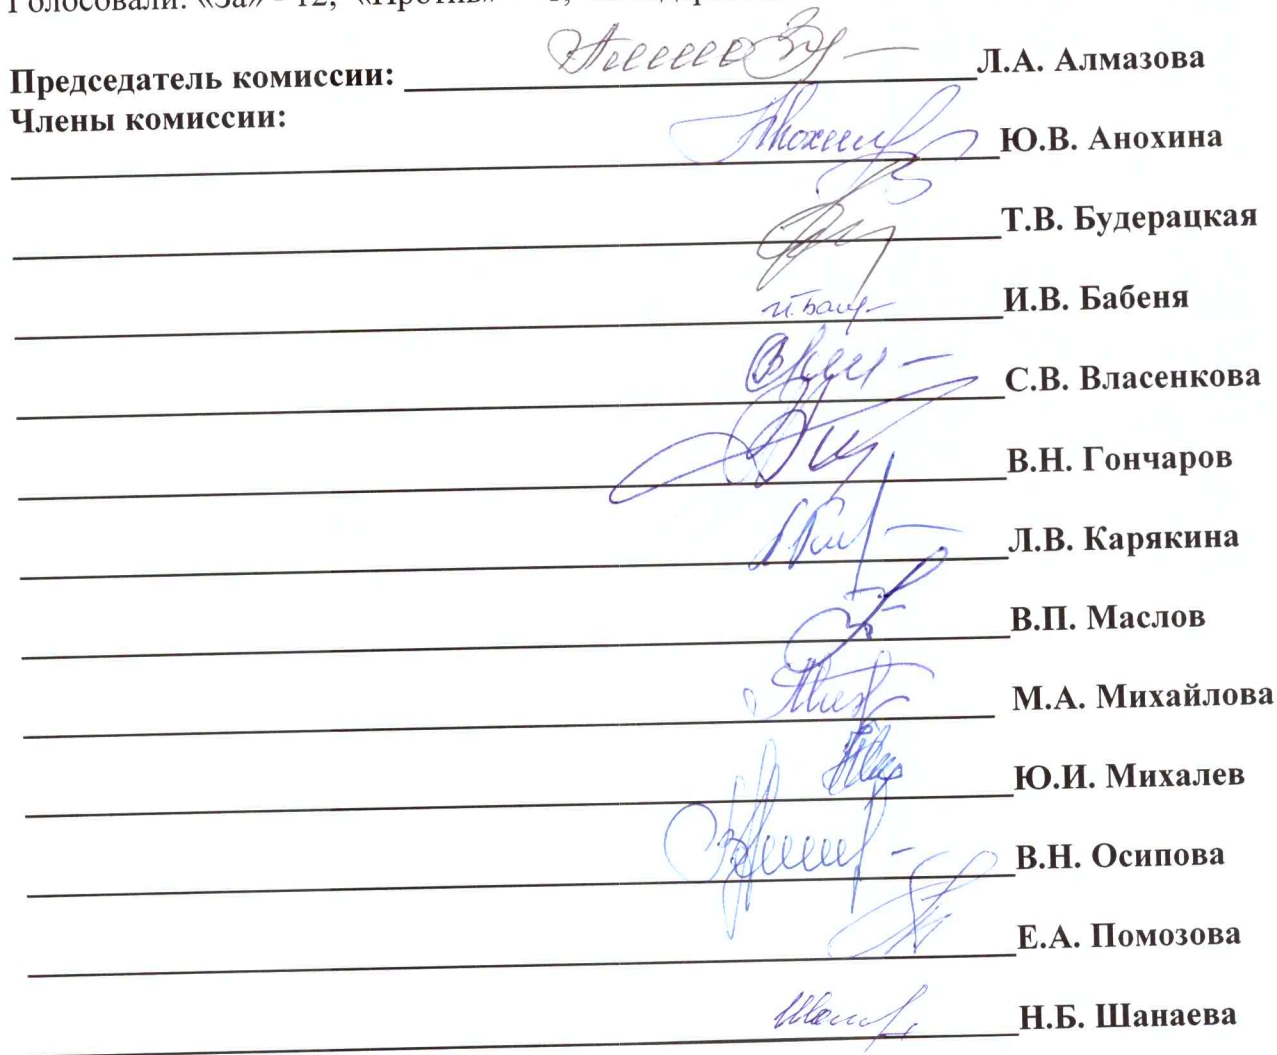 Голосовали: «За» - 12, «Против» - 1,
Председатель комиссии: Л.А. Алмазова
Члены комиссии:
Ю.В. Анохина
Т.В. Будерацкая
И.В. Бабеня
С.В. Власенкова
В.Н. Гончаров
Л.В. Карякина
В.П. Маслов
М.А. Михайлова
Ю.И. Михалев
В.Н. Осипова
Е.А. Помозова
Н.Б. Шанаева